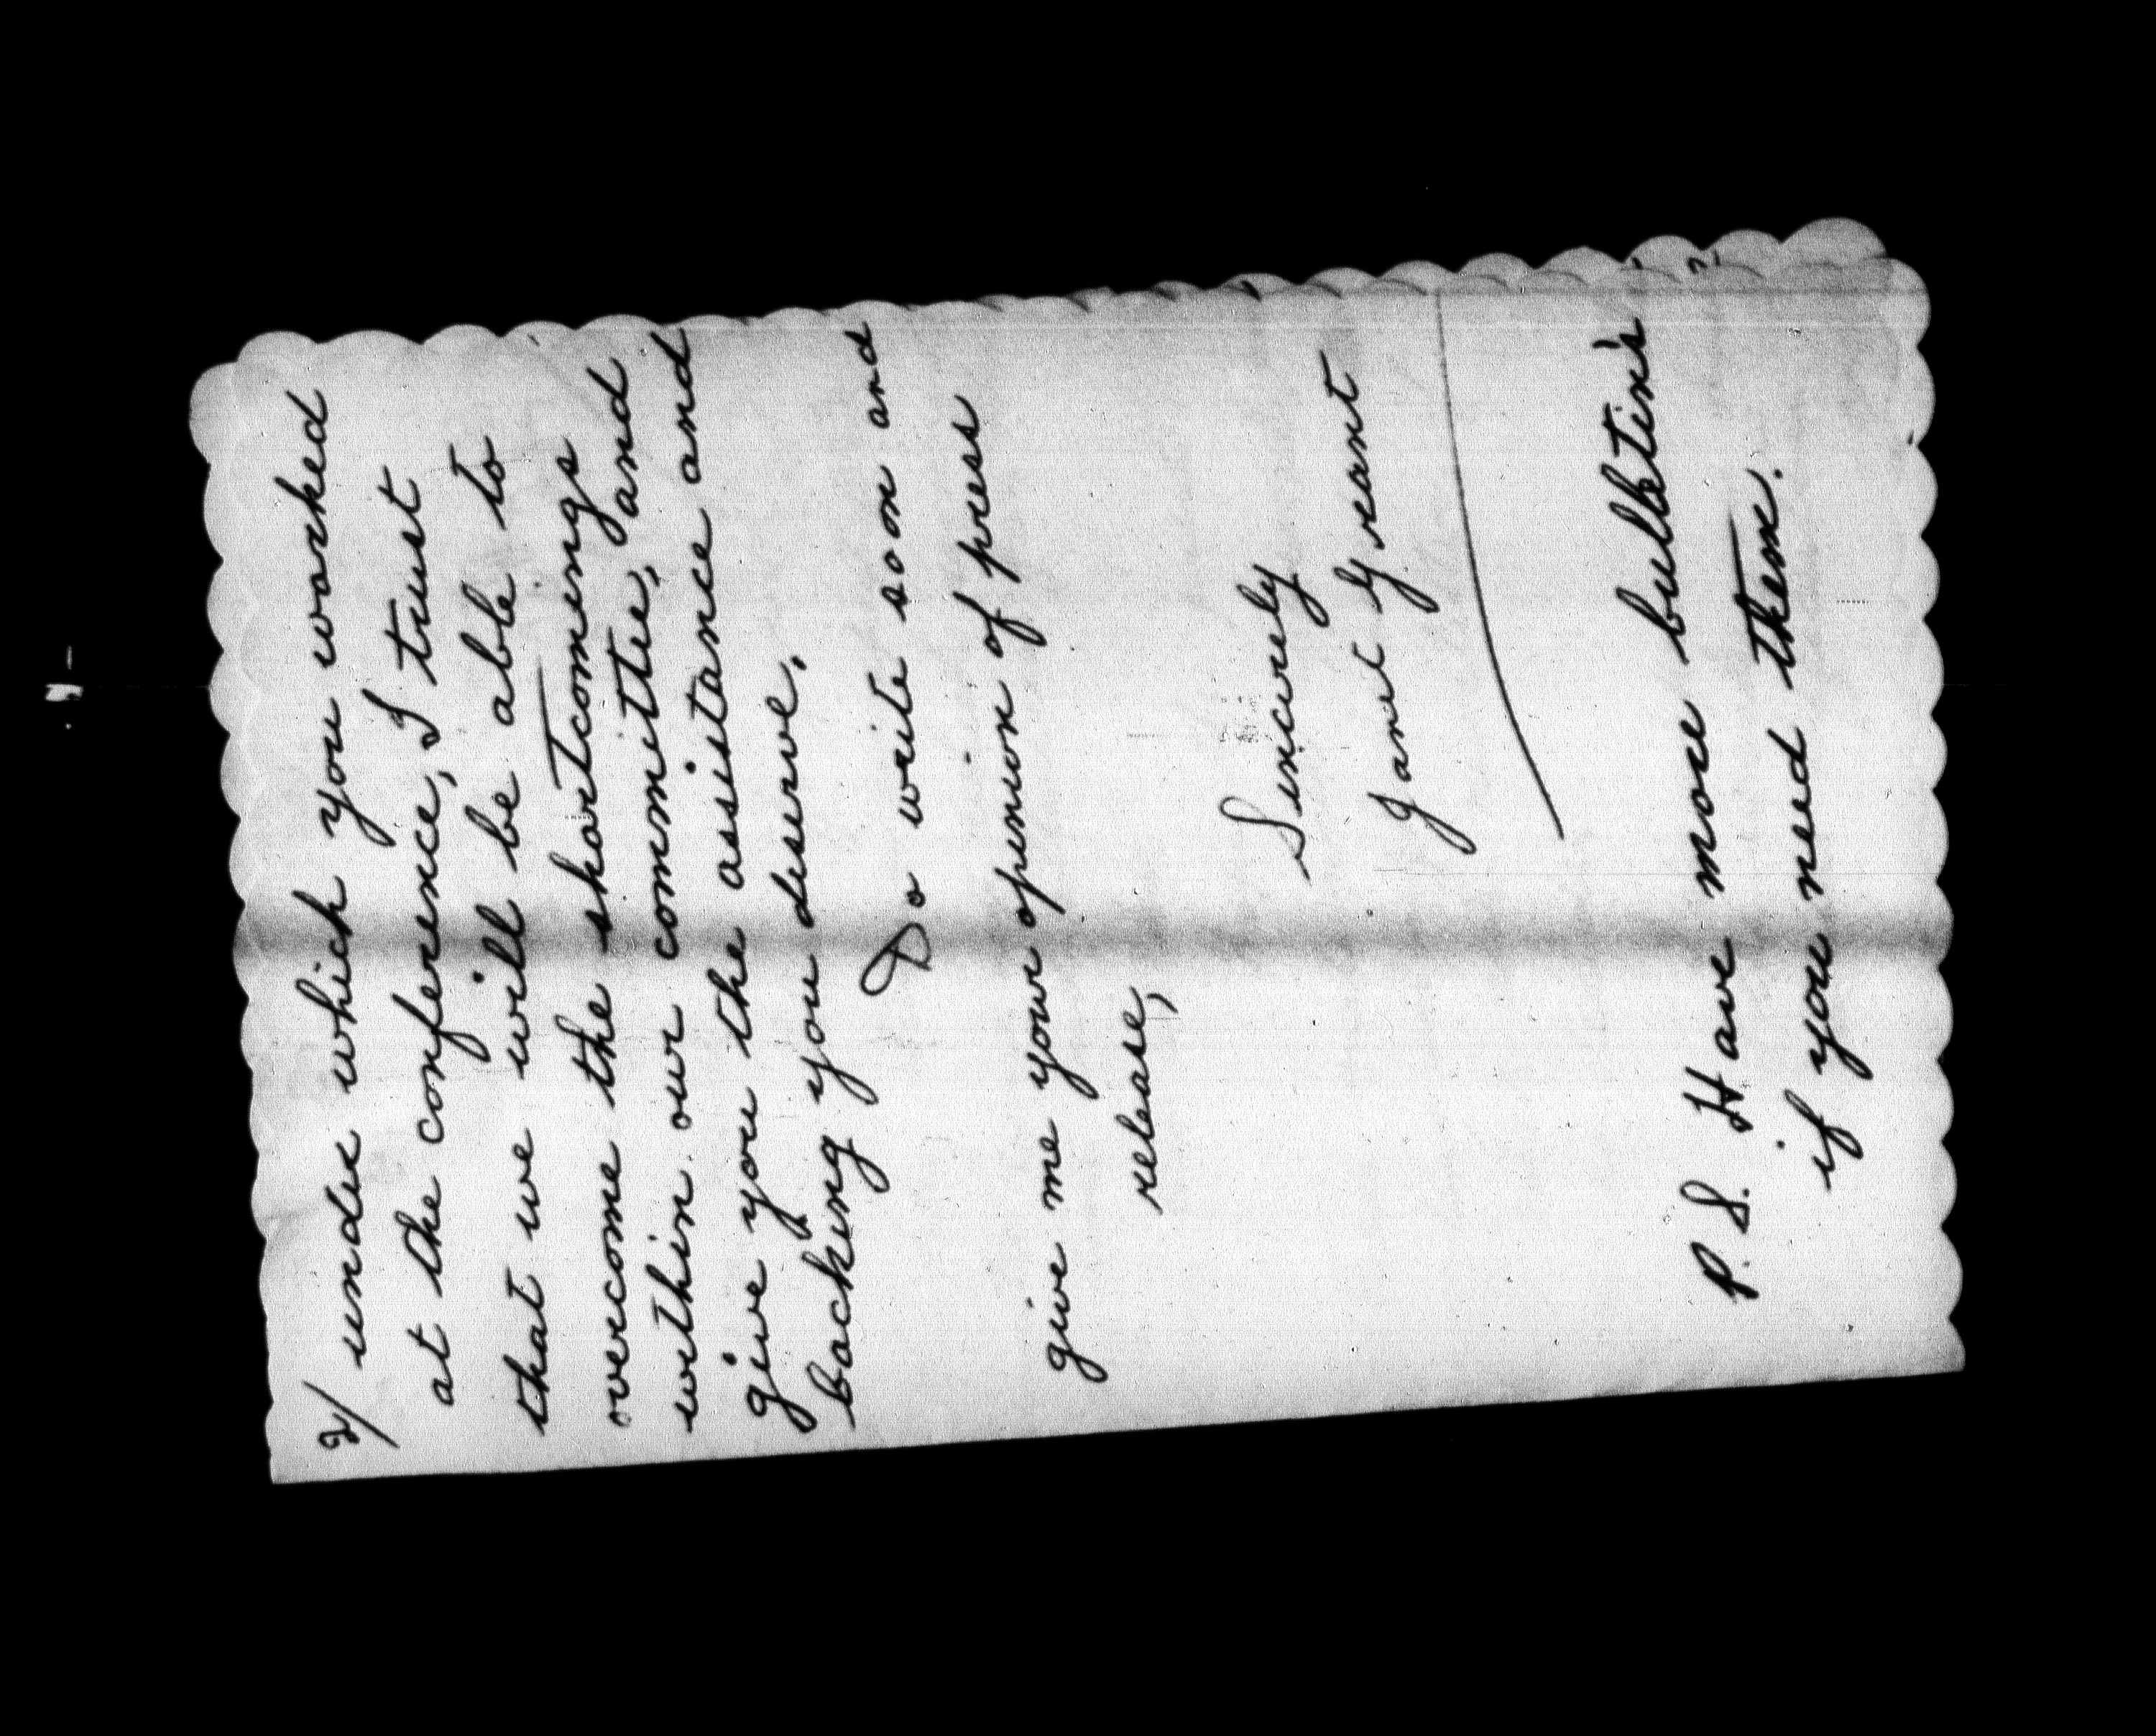 2/ under which you worked
at the conference, I trust
that we will be able to
overcome the shortcomings
within our committee, and
give you the assitance and
backing you deserve.
Do write soon and
give me your openion of press
release,
Sincerely
Janet Grant
P.S. Have more bulletin's
if you need them.